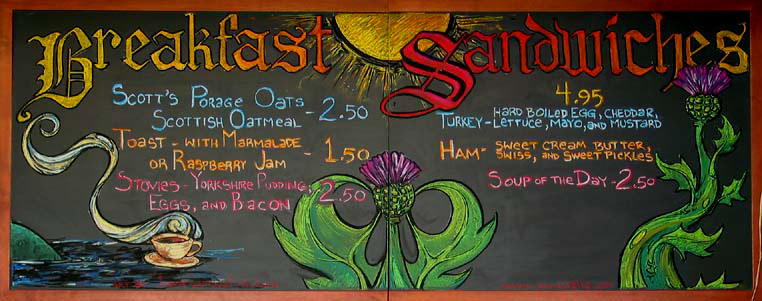 Breakfast
Scott's Porage Oats
Scottish Oatmeal - 2.50
Toast - with Marmalade
or Raspberry Jam - 1.50
Stovies - Yorkshire Pudding,
Eggs, and Bacon - 2.50
Sandwiches
4.95
Turkey - Hard Boiled Egg, Cheddar,
Lettuce, Mayo, and Mustard
Ham - Sweet Cream Butter,
Swiss, and Sweet Pickles
Soup of the Day - 2.50